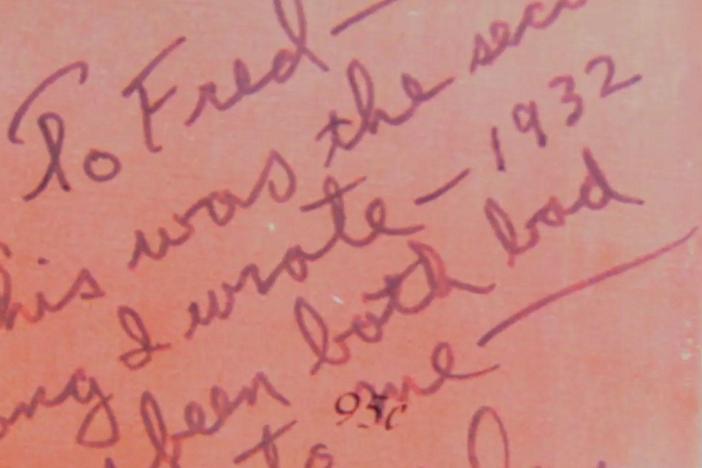 To Fred—
his was the seco
ong I wrote — 1932
been both bad
to me —
95c